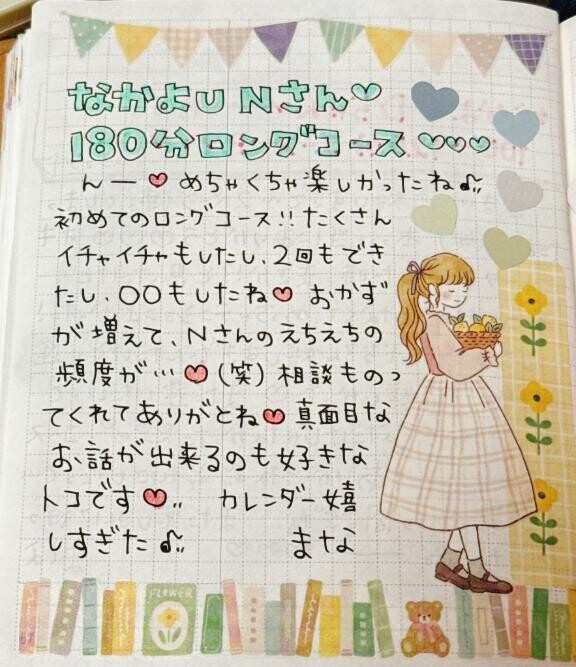 なかよU Nさん♡
180分ロングコース♡♡♡
んー♥めちゃくちゃ楽しかったね♫
初めてのロングコース!!たくさん
イチャイチャもしたし、2回もでき
たし、〇〇もしたね♥おかず
が増えて、Nさんのえちえちの
頻度が…♥(笑)相談ものっ
てくれてありがとね♥真面目な
お話が出来るのも好きな
トコです♥.. カレンダー嬉
しすぎた♫ まな
FLOWER